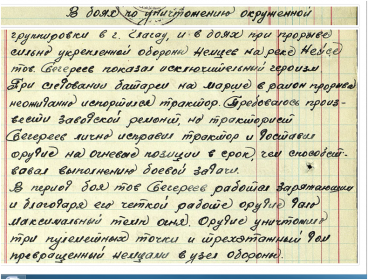 В боях по уничтожению окруженной
группировки в г. и в боях при прорыве
сильно укрепленной обороны немцев на реке Нейсе
тов. Бегереев показал исключительный героизм
При следовании батареи на марше в район прорыва
неожиданно испортился трактор. Требовалось произ-
вести заводской ремонт, но тракторист
Бегереев лично исправил трактор и доставил
орудие на огневые позиции в срок, чем способст-
вовал выполнению боевой задачи.
В период боя тов Бегереев работал заряжающим
и благодаря его четкой работе орудие дало
максимальный темп огня. Орудие уничтожило
три пулеметных точки и трехэтажный дом
превращенный немцами в узел обороны.